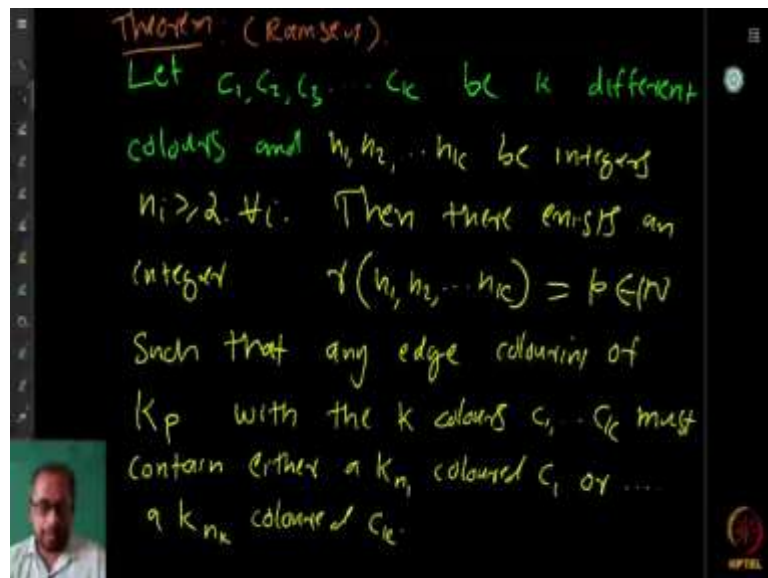 Theorem: (Ramsey's).
Let c₁, c₂, c₃ ... cₖ be k different
colours and n₁, n₂, ... nₖ be integers
nᵢ ≥ 2. ∀i. Then there exists an
integer r(n₁, n₂, ... nₖ) = p ∈ ℕ
Such that any edge colouring of
Kₚ with the k colours c₁ ... cₖ must
contain either a Kₙ₁ coloured c₁ or ....
a Kₙₖ coloured cₖ.
NPTEL